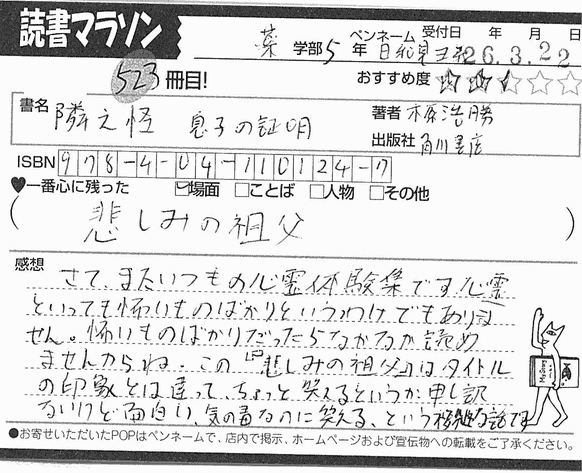 読書マラソン
薬 学部 5 年 ペンネーム 受付日 年 月 日
26.3.22
523 冊目! おすすめ度 ☆☆☆☆☆
書名 隣之怪 息子の証明
著者 木原浩勝
出版社 角川書店
ISBN 978-4-04-110124-7
♥一番心に残った ☑場面 □ことば □人物 □その他
(悲しみの祖父)
感想
さて、またいつもの心霊体験集です。心霊
といっても怖いものばかりというわけでもありま
せん。怖いものばかりだったらなかなか読め
ませんからね。この『悲しみの祖父』はタイトル
の印象とは違って、ちょっと笑えるというか、申し訳
ないけど面白い、気の毒なのに笑える、という 話です
●お寄せいただいたPOPはペンネームで、店内で掲示、ホームページおよび宣伝物への転載をご了承ください。